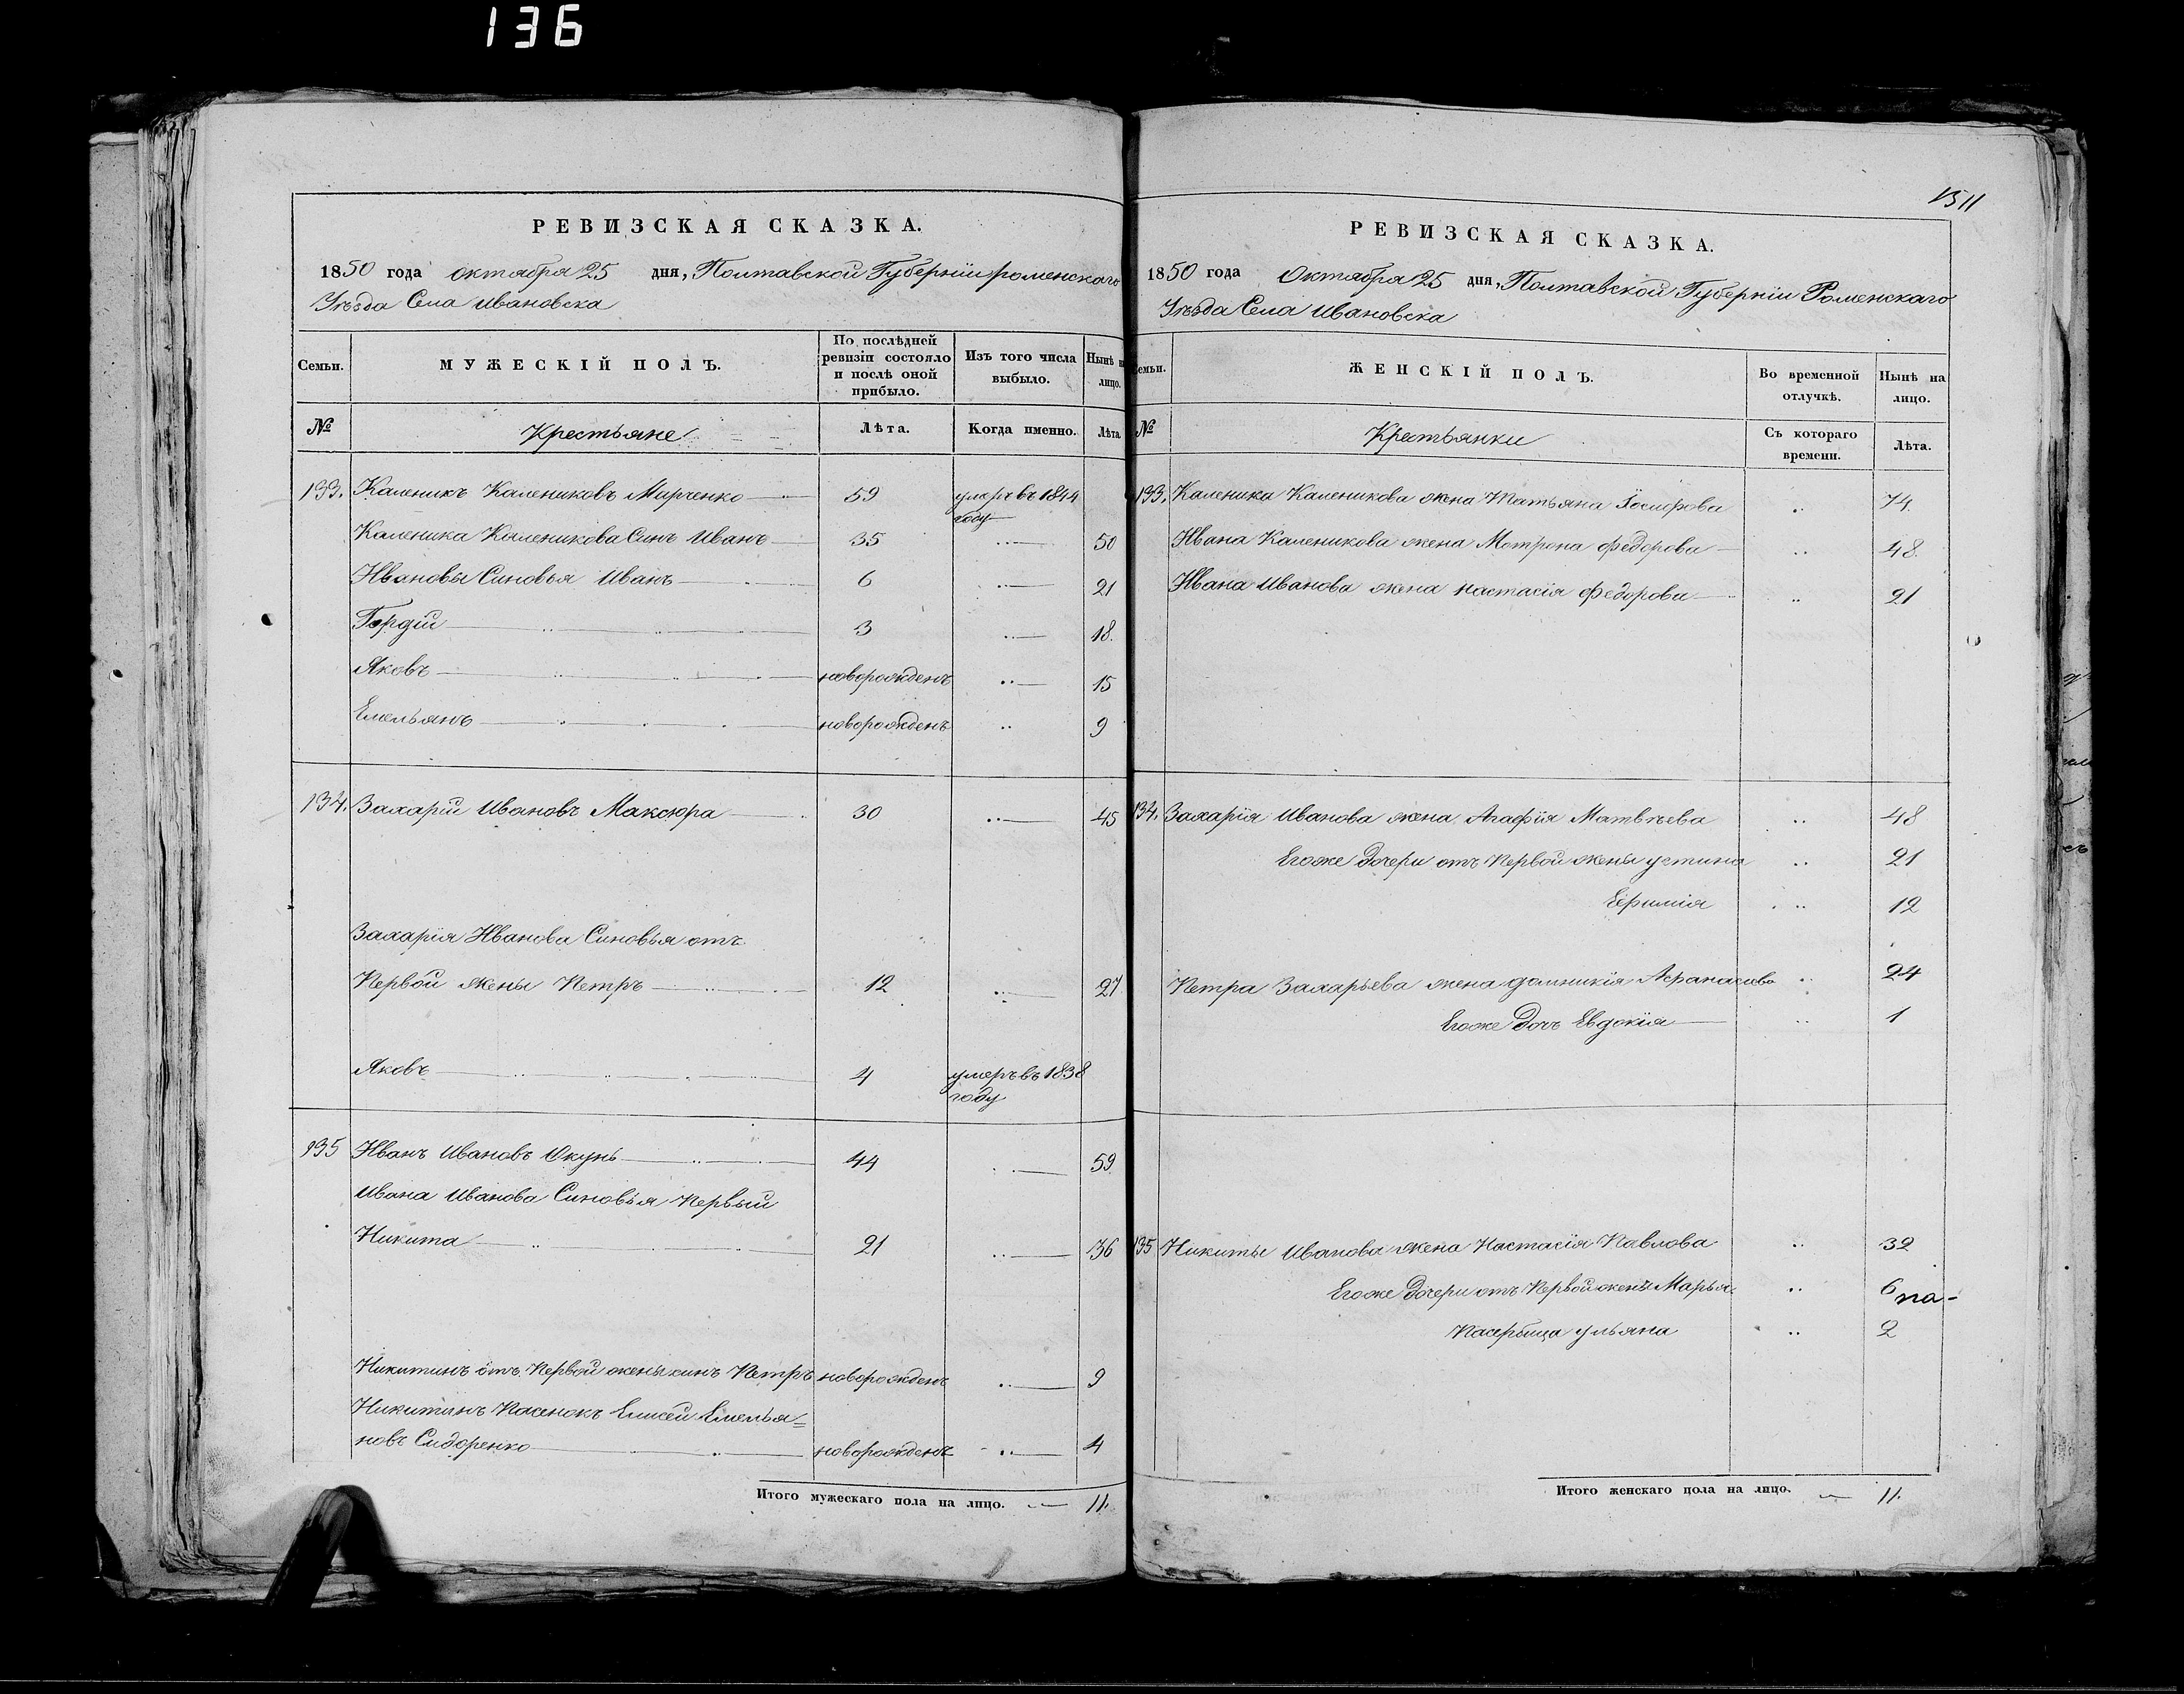 136
РЕВИЗСКАЯ СКАЗКА.
1850 года октября 25 дня, Полтавской Губерніи роменскаго
Уѣзда Села Ивановска
Семьи.
МУЖЕСКІЙ ПОЛЪ.
По послѣдней ревизіи состояло и послѣ оной прибыло.
Изъ того числа выбыло.
Нынѣ на лицо.
№ Крестьяне Лѣта. Когда именно. Лѣта
133. Каленикъ Калениковъ Мирченко 59 умеръ въ 1844 году
Каленика Каленикова Синъ Иванъ 35 50
Ивановы Синовья Иванъ 6 21
Гордій 3 18.
Яковъ новорожденъ 15
Емельянъ новорожденъ 9
134. Захарій Ивановъ Максюра 30 45
Захарія Иванова Синовья отъ
Первой жены Петръ 12 27
Яковъ 4 умеръ въ 1838 году
135 Иванъ Ивановъ Окунь 44 59
Ивана Иванова Синовья Первый
Никита 21 36
Никитинъ отъ Первой жены синъ Петръ новорожденъ 9
Никитинъ Пасенокъ Елисей Емелья=
новъ Сидоренко новорожденъ 4
Итого мужескаго пола на лицо. 11.
1511
РЕВИЗСКАЯ СКАЗКА.
1850 года Октября 25 дня, Полтавской Губерніи Роменскаго
Уѣзда Села Ивановска
Семьи.
ЖЕНСКІЙ ПОЛЪ.
Во временной отлучкѣ.
Нынѣ на лицо.
№ Крестьянки Съ котораго времени. Лѣта.
133. Каленика Каленикова жена Татьяна 74.
Ивана Каленикова жена Мотрона федорова 48.
Ивана Иванова жена настасія федорова 21
134. Захарія Иванова жена Агафія Матвѣева 48
Егоже Дочери отъ Первой жены устина 21
Ефимія 12
Петра Захарьева жена домникія Афанасиева 24
Егоже Дочь Евдокія 1
135 Никиты Иванова жена Настасія Павлова 32
Егоже Дочери отъ Первой жены Марья 6
па-
Пасербица ульяна 2
Итого женскаго пола на лицо. 11.